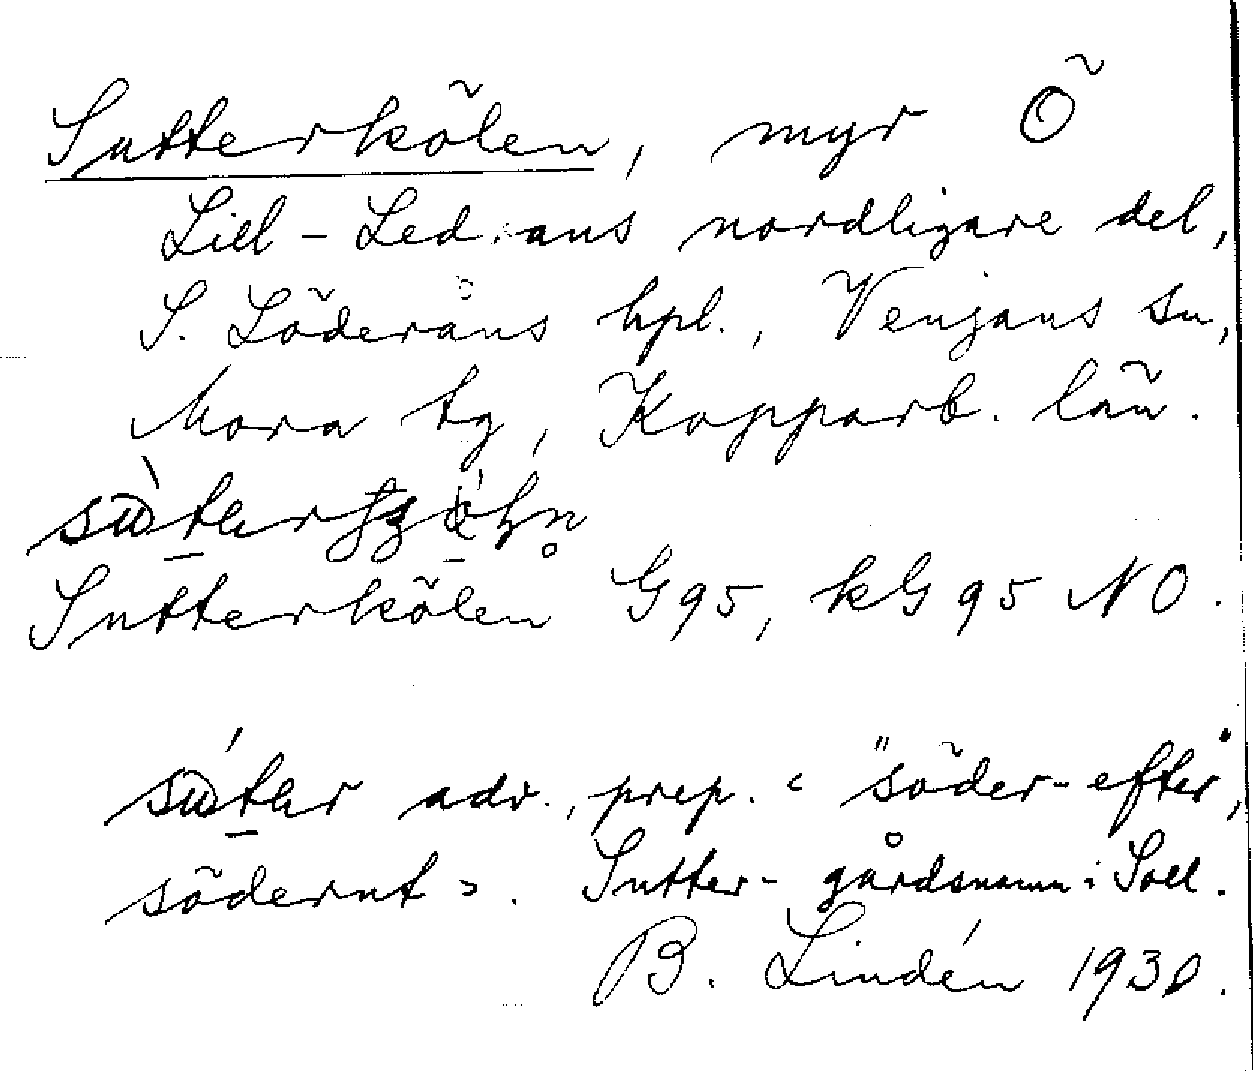 Sutterkölen, myr Ö
Lill-Led.ans nordligare del,
S. Söderåns hpl., Venjans sn,
Mora tg, Kopparb. län.
Sutterkölen G95, kG95 NO.
adv., prep. "söder-efter",
söderut. Sutter- gårdsnamn i Soll.
B. Lindén 1930.